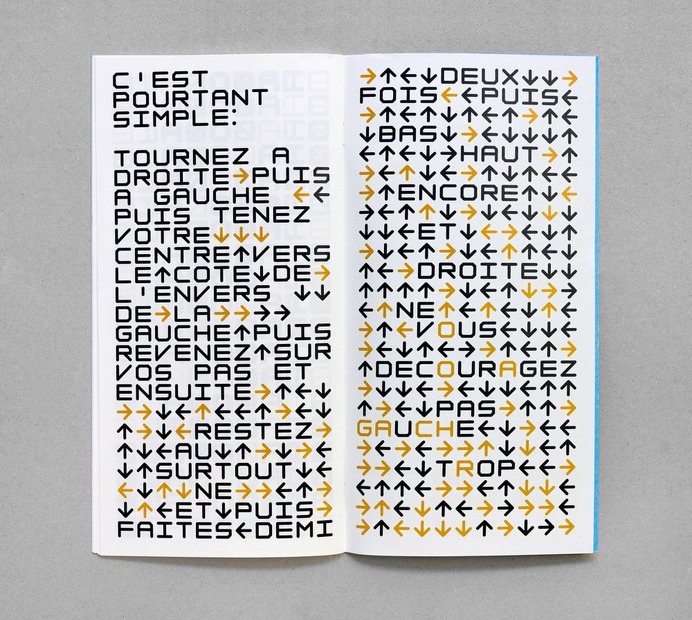 C'EST
POURTANT
SIMPLE:
TOURNEZ A
DROITE→PUIS
A GAUCHE ←←
PUIS TENEZ
VOTRE↓↓↓
CENTRE↑VERS
LE↑COTE↓DE→
L'ENVERS ↓↓
DE→LA→→→→
GAUCHE↑PUIS
REVENEZ↑SUR
VOS PAS ET
ENSUITE→↑←↓
→→↓←↑←←↑←←↓
↑→↓←RESTEZ→
↑↓↓AU↓↑↓→↓←
↓↑SURTOUT↓←
←↓↑↓NE→→←↑→
↓↑←ET↓PUIS→
FAITES←DEMI
→↑←↓DEUX↓↓→
FOIS←←PUIS←
↓BAS↓→
←↑↓→→HAUT→↑
→↑ENCORE↑↓←
↓↓←ET↓→
↑←→DROITE↓↓
←↑NE↑←↓↑←↑←
→↑←VOUS←↓↓←
↑DECOURAGEZ
↑←↓↓PAS→↑↑→
GAUCHE←↓→↓←
→→←↓TROP←←→